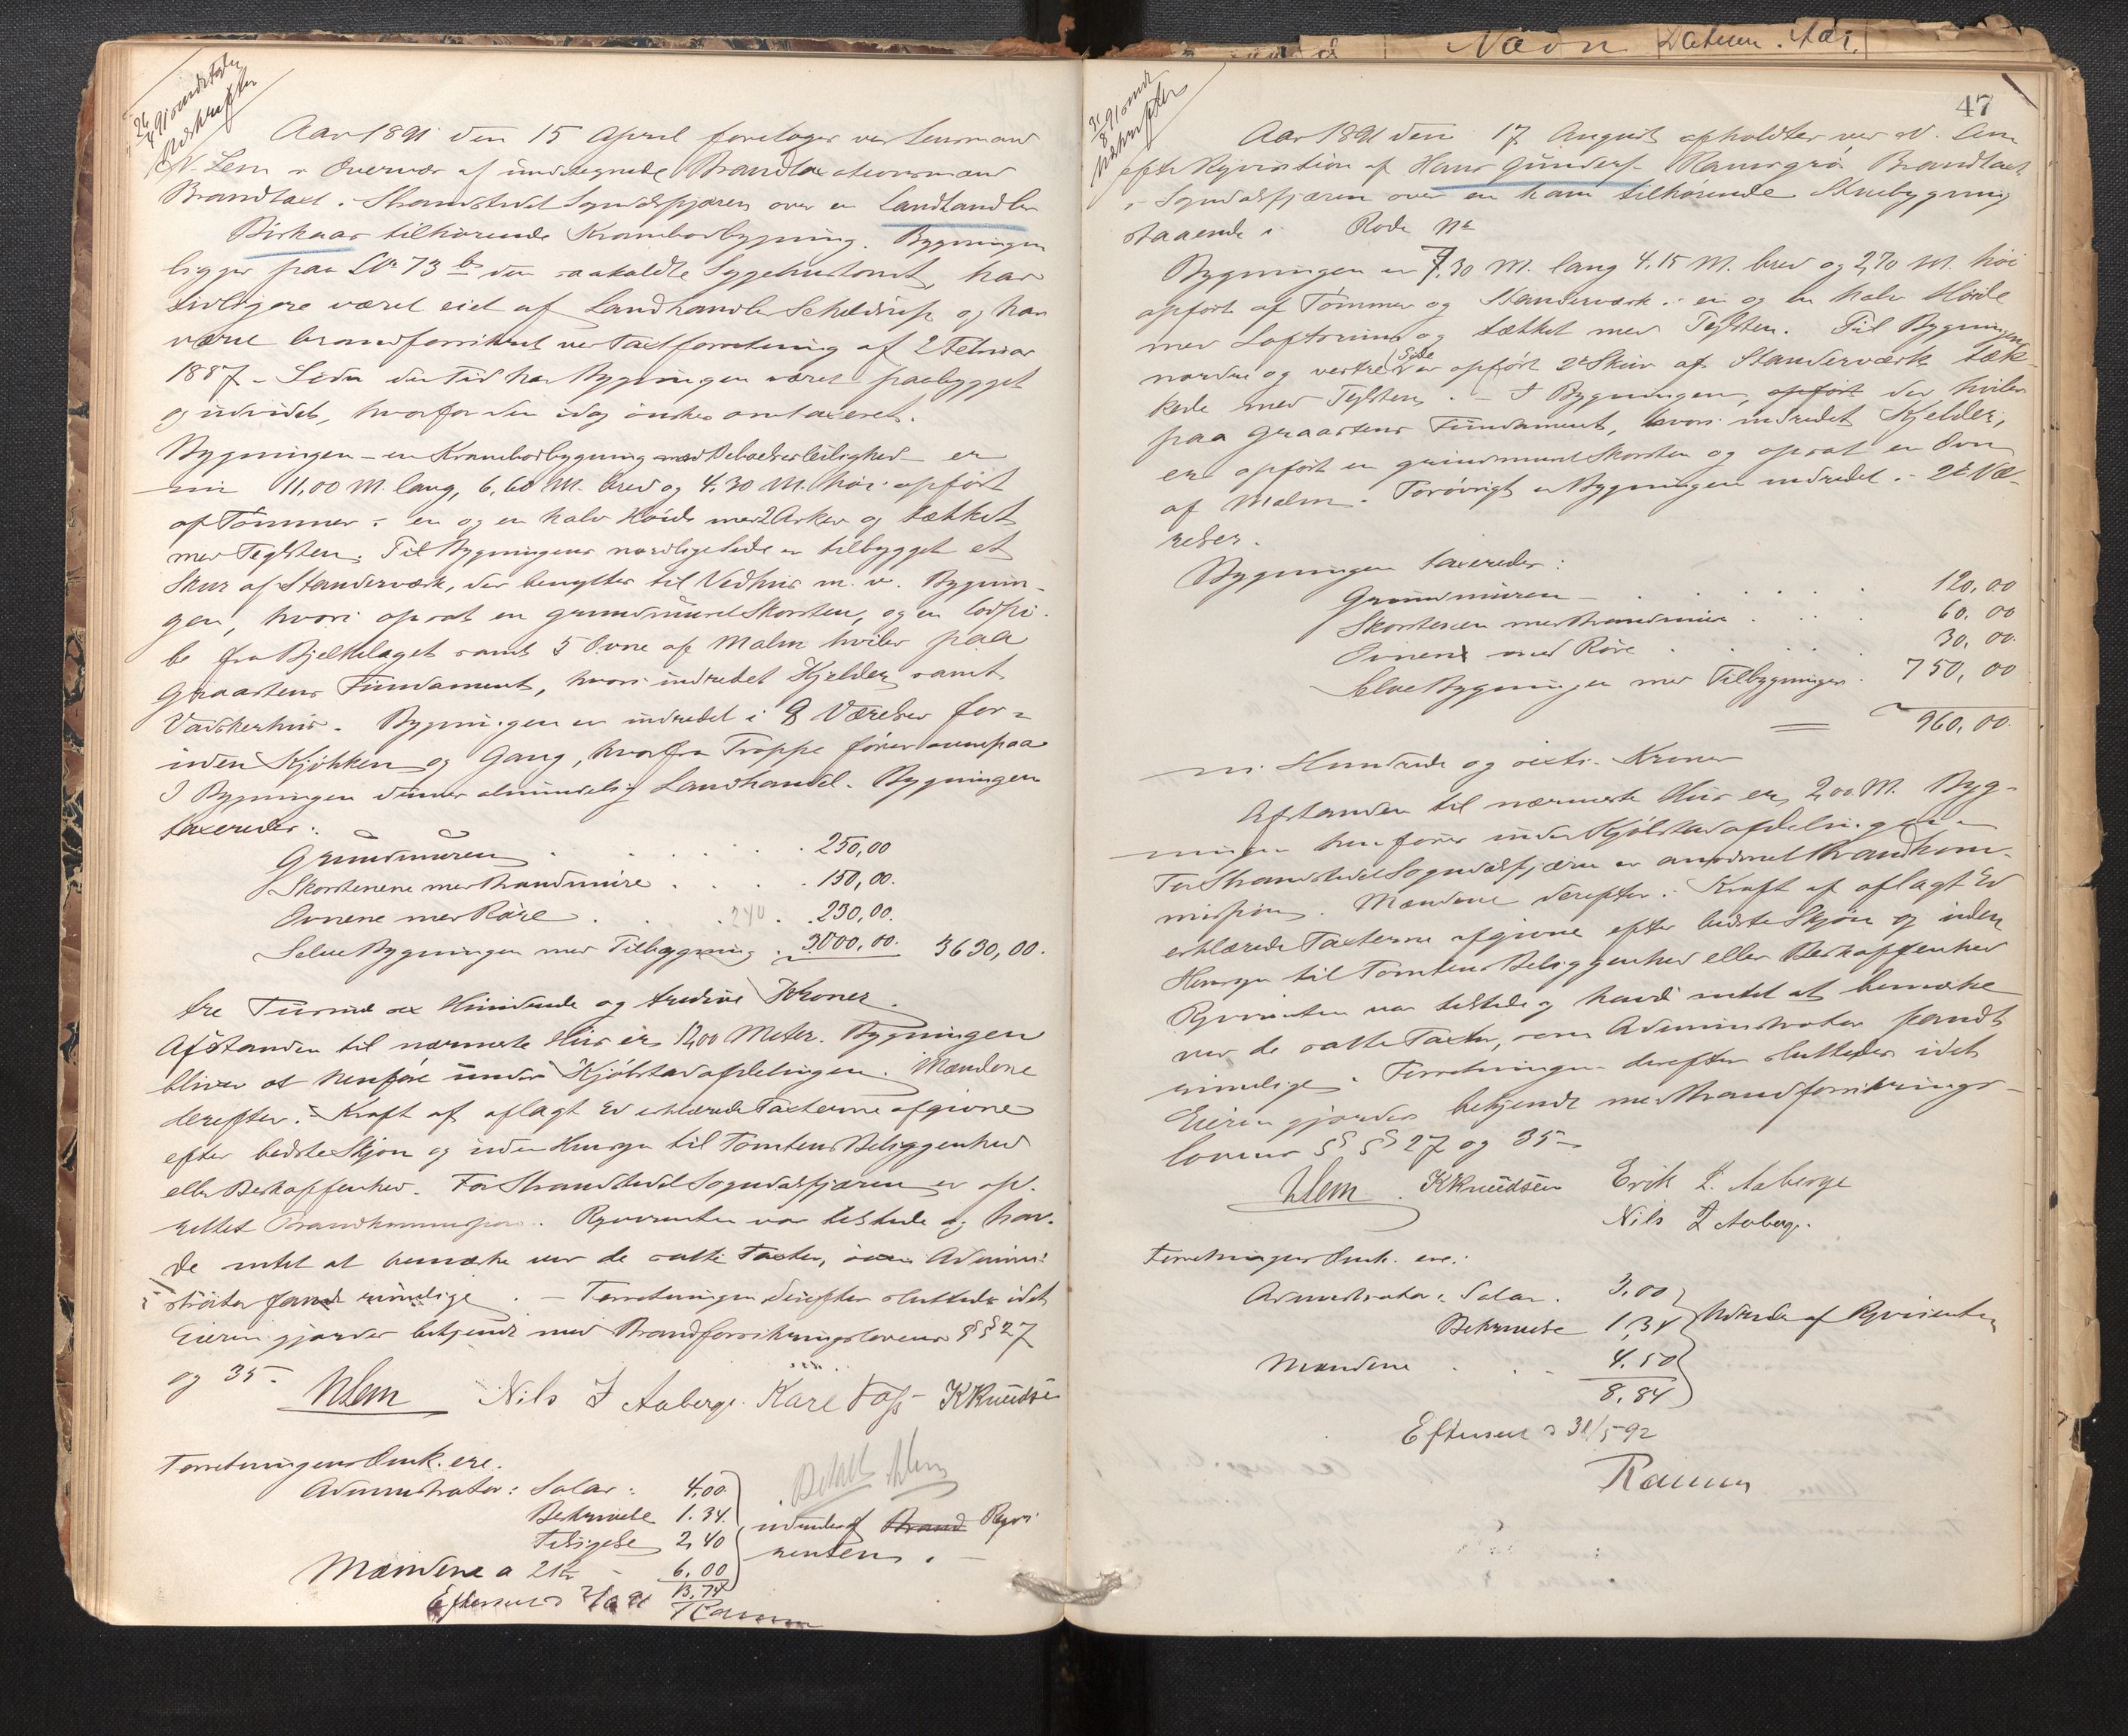 26/4 91 omdstedes
Udskrifter
Aar 1891 den 15 April foretoges ved Lensmand
N. Lem i Overvær af undertegnede Brandtaxationsmænd
Brandtaxt i Strandstedet Sogndalsfjæren over en Landhandler
Birkaas tilhørende Krambodbygning. Bygningen
ligger paa LNr 73 b den saakaldte Sygehustomt, har
tidligere været eiet af Landhandler Scheldrup og har
været brandforsikret ved Taxtforretning af 2 Februar
1887 – Siden den Tid har Bygningen været paabygget
og udvidet, hvorfor den idag ønskes omtaxeret.
Bygningen – en Krambodbygning med Beboelsesleilighed – er
11,00 M. lang, 6,60 M. bred og 4,30 M. høi opført
af Tømmer i en og en halv Høide med 2 Arker og tækket
med Teglsten. Til Bygningens nordlige Side er tilbygget et
Skur af Standerværk, der benyttes til Vedhus m. v. Bygnin-
gen, hvori opsat en grundmuret Skorsten, og en Lodpi-
be fra Bjelkelaget samt 5 Ovne af Malm hviler paa
Graastens Fundament, hvori indredet Kjelder samt
Vadskerhus. Bygningen er indredet i 8 Værelser for-
uden Kjøkken og Gang, hvorfra Trappe fører ovenpaa
I Bygningen drives almindelig Landhandel. Bygningen
taxeredes:
Grundmuren . . . . . . 250,00
Skorstenene med Brandmure . . . . 150,00.
Ovnene med Røre . . . 240 . . 230,00.
Selve Bygningen med Tilbygning . 3000,00. 3630,00.
tre Tusind sex Hundrede og tredive Kroner.
Afstanden til nærmeste Hus er 12,00 Meter. Bygningen
bliver at henføre under Kjøbstadafdelingen. Mændene
derefter i Kraft af aflagt Ed erklærede Taxterne afgivne
efter bedste Skjøn og uden Hensyn til Tomtens Beliggenhed
eller Beskaffenhed. For Strandstedet Sogndalsfjæren er op-
rettet Brandkommission. Rqvirenten var tilstede og hav-
de intet at bemærke ved de satte Taxter, som Admini-
strator fandt rimelige. – Forretningen derefter sluttedes idet
Eieren gjordes bekjendt med Brandforsikringslovens §§ 27
og 35 –
NLem Nils J Aaberge. Karl Foss – KKnudsen
Forretningens Omk. ere.
Administrator: Salær: 4,00
Beskrivelse 1.34.
Tilsigelse 2,40
Mændene a 2 Kr – 6,00
13,74
Betalt NLem
udredes af Brand Rqvi-
renten. –
Efterseet
Ramm
Navn Datum. Aar.
47
31/8 91 omdt
Udskrifter
Aar 1891 den 17 August afholdtes ved N. Lem
efter Rqvisition af Hans Gunders. Hamrgrø Brandtaxt
i Sogndalsfjæren over en ham tilhørende Stuebygning
staaende i Rode No
Bygningen er 7,30 M. lang 4,15 M. bred og 2,70 M. høi
opført af Tømmer og Standerværk i en og en halv Høide
med Loftsrum og tækket med Teglsten. Til Bygningens
nordre og vestre Side er opført 2de Skur af Standerværk tæk-
kede med Teglsten. – I Bygningen, opført der hviler
paa Graastens Fundament, hvori indredet Kjelder,
er opført en grundmuret Skorsten og opsat en Ovn
af Malm. Forøvrigt er Bygningen indredet i 2de Væ-
relser.
Bygningen taxeredes:
Grundmuren – . . . . . 120,00
Skorstenen med Brandmur . . . . 60,00
Ovnen med Røre . . . . . 30,00.
Selve Bygningen med Tilbygninger . 750,00
960,00.
ni Hundrede og sexti Kroner
Afstanden til nærmeste Hus er 2,00 M. Byg-
ningen henføres under Kjøbstadafdelingen –
For Strandstedet Sogndalsfjæren er anordnet Brandkom-
mission. Mændene derefter i Kraft af aflagt Ed
erklærede Taxterne afgivne efter bedste Skjøn og uden
Hensyn til Tomtens Beliggenhed eller Beskaffenhed
Rqvirenten var tilstede og havde intet at bemærke
ved de satte Taxter, som Administrator fandt
rimelige. Forretningen derefter sluttedes idet
Eieren gjordes bekjendt med Brandforsikrings-
lovens §§ 27 og 35 –
NLem . KKnudsen Erik L. Aaberge
Nils J Aaberge.
Forretningens Omk. ere:
Administrator: Salær. 3,00
Beskrivelse 1,34
Mændene . . . 4.50
8,84
Udredes af Rqvirenten
Efterseet d 31/5 92
Ramm